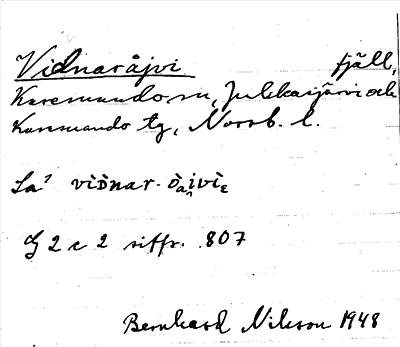 Vidnaråjvi fjäll,
Karesuando sn, Jukkasjärvi och
Karesuando tg, Norrb. l.
La¹ vìdnar-òạiviε
G 2 c 2 siffr. 807
Bernhard Nilsson 1948